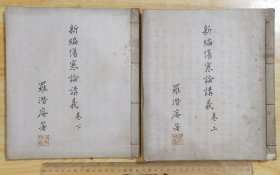 新編傷寒論講義 卷上
羅潛庵著
新編傷寒論講義 卷下
羅潛庵著